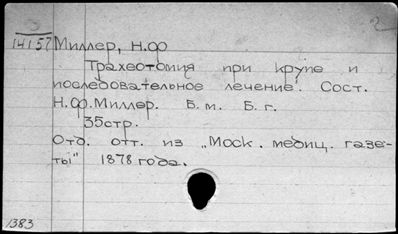 2
14157 Миллер, Н.Ф
Трахеотомия при крупе и
последовательное лечение. Сост.
Н.Ф.Миллер. Б.м. Б.г.
35стр.
Отд. отт. из „Моск. медиц. газе-
ты" 1878 года.
1383